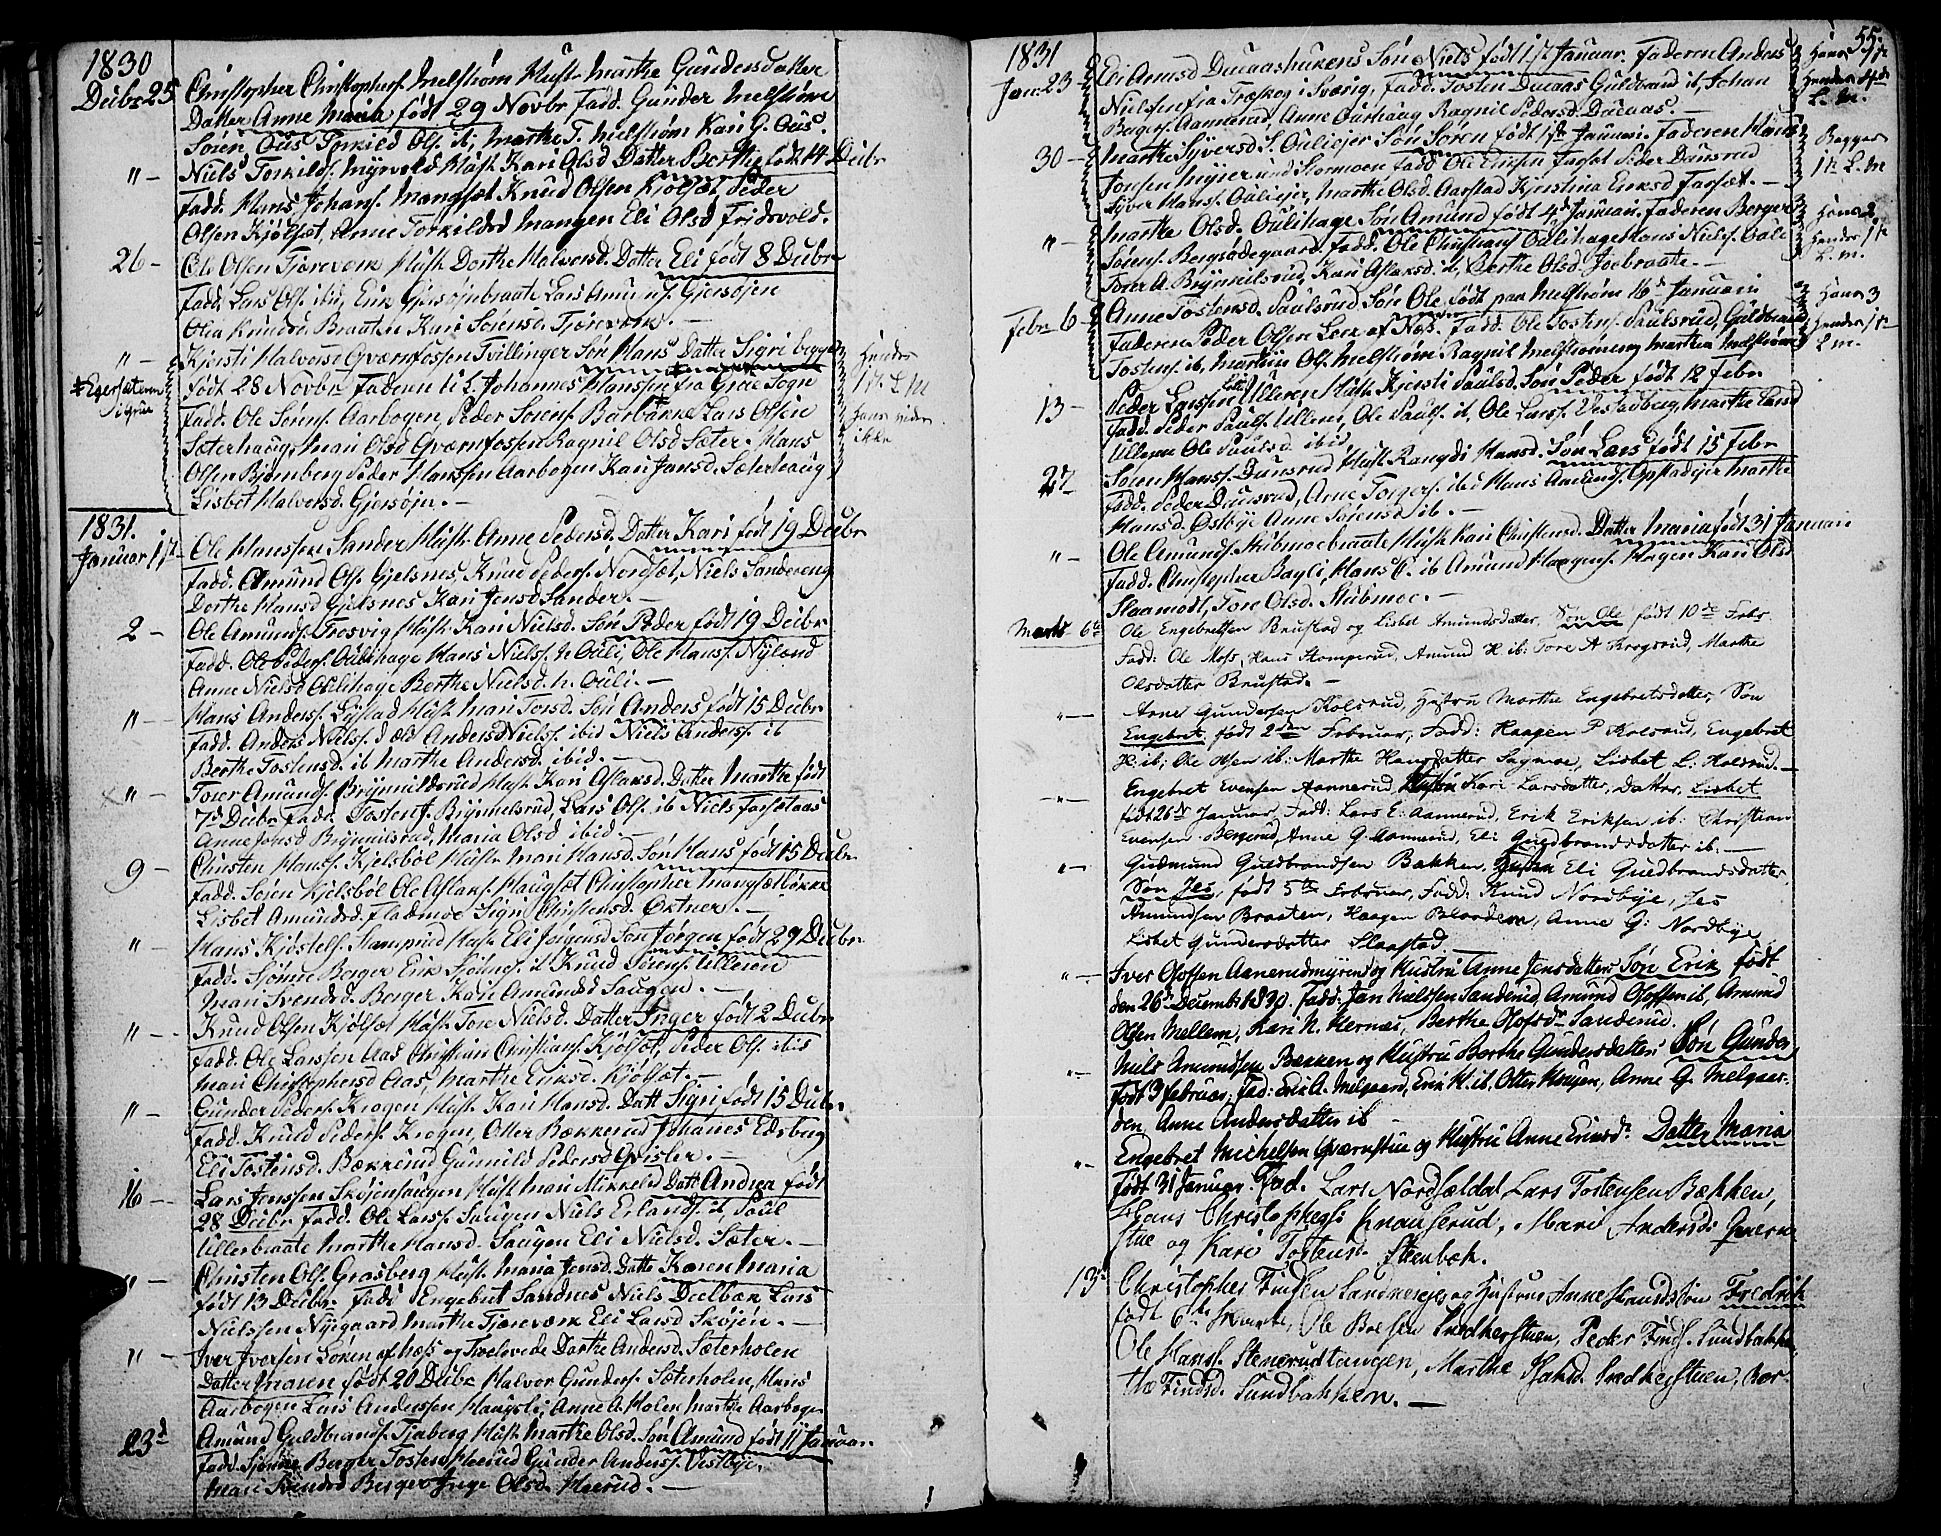 1830
Decbr 25
Christopher Christophers. Melstrøm Hust. Marthe Gundersdatter
Datter Anne Maria født 29 Novbr Fadd. Gunder Melstrøm
Søren Ous Torkild Ols. ib, Marthe T. Melstrøm Kari G. Ous.
" – Niels Torkilds. Myrvold Hust. Kari Olsd Datter Berthe født 14 Decbr
Fadd. Hans Johans. Mangset Knud Olsen Kjølset, Peder
Olsen Kjølset, Anne Torkildsd Mangen Eli Olsd Fridsvold.
26 – Ole Olsen Tjæreværk Hust. Dorthe Halvorsd. Datter Eli født 8 Decbr
Fadd. Lars Ols. ibid, Erik Gjersøjenbraate Lars Amunds. Gjersøjen
Olea Knudsd. Braaten Kari Sørensd. Tjæreværk. –
" – Kjersti Halvorsd Qværnfossen Tvillinger Søn Hans Datter Sigri begge
født 28 Novbr Faderen u. S. Johannes Hanssen fra Grue Sogn
Fadd. Ole Sørens. Aarbogen, Peder Sørens. Barbakke Lars Olsen
Sæterhaug, Mari Olsd Qværnfossen Ragnil Olsd Sæter. Hans
Olsen Bjørnberg Peder Hanssen Aarbogen Kari Jansd. Sæterhaug
Lisbet Halvorsd. Gjersøjen. –
Hendes
1ste L. M
hans vides
ikke
1831.
Januar 1ste Ole Hanssen Sander Hust. Anne Pedersd. Datter Kari født 19 Decbr
Fadd. Amund Ols. Gjelsnes, Knud Peders. Nordset, Niels Sandereng
Dorthe Hansd Gjelsnes Kari Jensd Sander. –
2 – Ole Amunds. Trosvig Hust. Kari Nielsd. Søn Peder født 19 Decbr
Fadd. Ole Peders. Oulihage Hans Nielss. n. Ouli, Ole Hanss. Nyland
Anne Nielsd Oulihage Berthe Nielsd. n. Ouli. –
" – Hans Anders. Lystad Hust. Mari Torsd. Søn Anders født 15 Decbr
Fadd. Anders Nielss. d æld. Anders Nielss. ibid Niels Anderss. ib
Berthe Tostensd. ib Marthe Andersd. ibid. –
" – Torer Amunds. Brynnildsrud Hust. Kari Aslaksd. Datter Marthe født
7de Decbr Fadd. Tosten T. Brynnilsrud, Lars Ols. ib Niels
Anne Jonsd Brynnilsrud, Maria Olsd ibid. –
9 – Christen Hans. Kjelsbøl Hust. Mari Hansd. Søn Hans født 15 Decbr
Fadd. Søren Kjelsbøl Ole Aslaks. Haugset Christopher Mangsetbakke
Lisbet Amundsd. Fladmoe Sigri Christensd. Oktner. –
" – Hans Kjøstels. Stomprud Hust. Eli Jørgensd Søn Jørgen født 29 Decbr
Fadd. Sjønne Berger Erik Sjønnes. ib Knud Sørens. Ulleren
Mari Svendsd. Berger Kari Amundsd Saugen. –
" – Knud Olsen Kjølset Hust. Tore Nielsd. Datter Inger født 2 Decbr
Fadd. Ole Larssen Aas Christian Christians. Kjølset, Peder Ols. ibid
Mari Christophersd Aas, Marthe Eriksd. Kjølset. –
" – Gunder Peders. Krogen Hust. Kari Hansd. Datt Sigri født 15 Decbr
Fadd. Knud Peders. Krogen, Otter Bækkerud Johanes Edsberg
Eli Tostensd. Bækkerud Gunnild Pedersd Qvisler. –
16 – Lars Jenssen Skøjensaugen Hust. Mari Mikkelsd Datt Andrea født
28 Decbr Fadd. Ole Larss. Saugen Niels Erlands. ib, Poul
Ullerbraate Marthe Hansd. Saugen Eli Nielsd. Sæter. –
" – Christen Ols. Grasberg Hust. Maria Jensd. Datt Karen Maria
født 13 Decbr Fadd. Engebret Sandnes Niels Deelbæk Lars
Nielssen Nyegaard Marthe Tjæreværk Eli Larsd Skøjen. –
" – Iver Iversen Loken af Næss og Trolovede Dorthe Andersd. Sæterholen
Datter Maren født 20 Decbr Halvor Gunders. Sæterholen, Hans
Aarbogen Lars Anderssen Haugsli, Anne A. Holen Marthe Aarbogen
23de Amund Guldbrands. Tjaberg Hust. Marthe Olsd. Søn Amund født 11 Januar.
Fadd. Sjønne Berger Tosten Hverud Gunder Anders. Vestbye.
Mari Svendsd Berger Inge Olsd. Hverud. –
1831
55.
Jan. 23 – Eli Amsd Ducaashukens Søn Niels født 1ste Januar. Faderen Anders
Nielsen fra Træskog i Sverig, Fadd. Tosten Ducaas Guldbrand ib, Johan
Bagers. Aamerud, Anne Ourhaug Ragnil Pedersd. Ducaas. –
Hans 1ste
Hendes 4de
L. M.
30 – Marthe Syversd. S. Ouliejer Søn Søren født 1ste Januari. Faderen Hans
Jonsen Myier und Stormoen Fadd. Ole Ersen Farset Peder Dunsrud
Syver Hans. Ouliejer, Marthe Olsd. Aarstad Kjerstina Eriksd Farset. –
Begges
1ste L. M
" – Marthe Olsd. Oulihage Søn Amund født 4de Januari. Faderen Berger
Sørens. Bergsødegaard Fadd. Ole Christians Oulihage Hans Niels. Ouli
Torer A. Brynnilsrud, Kari Aslaksd. ib, Berthe Olsd. Joebraate. –
Hans 2,
Hendes 1ste
L. M.
Febr 6 – Anne Tostensd. Paulsrud Søn Ole født paa Melstrøm 16de Januari
Faderen Peder Olsen Leer af Næs. Fadd. Ole Tostens. Paulsrud, Guldbrand
Tostens. ib, Martin Ols. Melstrøm Ragnil Melstrøm og Marthea Melstrøm
Hans 3
Hendes 1ste
L. M.
13 – Peder Larssen Ulleren Hust. Kjersti Paulsd. Søn Peder født 12 Febr
Fadd. Peder Pauls. Ulleren, Ole Pauls. ib, Ole Larss. Vestadberg, Marthe Larsd
Ulleren Ole Paulsd ibid
27 – Søren Hanss. Dunsrud Hust. Rangdi Hansd. Søn Lars født 15 Febr
Fadd. Peder Dunsrud, Arne Torgers. ibid Hans Amunds. Opstadejer Marthe
Hansd. Østbye Anne Sørensd ib. –
" – Ole Amunds. Stubmoebraate Hust. Kari Christensd. Datter Maria født 31 Januari
Fadd. Christopher Bagli, Hans C. ib Amund Haagens. Hagen Kari Olsd
Slaamodt, Tore Olsd. Stubmoe. –
Marts 6te Ole Engebretsen Brustad og Lisbet Amundsdatter, Søn Ole født 10de Febr.
Fadd: Ole Moss, Hans Stomperud, Amund H. ib: Tore A Krogsrud, Marthe
Olsdatter Brustad. –
" – Arne Gundersen Kolsrud, Hustru Marthe Engebretsdatter, Søn
Engebret, født 2den Februar, Fadd: Haagen P Kolsrud, Engebret
H: ib; Ole Olsen ib: Marthe Hansdatter Sagmoe, Lisbet L: Holsrud. –
" – Engebret Evensen Aannerud, Hustru Kari Larsdatter, Datter Lisbet
født 26de Januar, Fadd: Lars E: Aannerud, Erik Eriksen ib: Christian
Evensen Bergerud, Anne G. Aannerud, Eli Guldbrandsdatter ib: –
" – Gudmund Guldbrandsen Bakken, Hustru Eli Guldbrandsdatter,
Søn Jes, født 5te Februar, Fadd: Knud Nordbye, Jes
Amundsen Braaten, Haagen, Anne G: Nordbye
Lisbet Gundersdatter Slaastad.
" – Iver Olofsen Aanerudmyrens og Hustru Anne Jensdatters Søn Erik født
den 26de Decembr 1830. Fadd: Jan Nielssen Sanderud, Amund Olofsen ib, Amund
Olsen Mellem, Kari N. Hernæs, Berthe Olofsdr Sanderud.
" – Niels Amundsen Bakken og Hustru Berthe Gundersdatters Søn Gunder
født 3 februar; fad: Erik A. Melgaard, Erik H. ib, Otter Haugen, Anne G. Melgaar-
den, Anne Andersdatter ib
" – Engebret Michelsen Qværnstue og Hustru Anne Ericsdr. Datter Maria
født 31 Januar. Fad. Lars Nordfældet Lars Tostensen Bækken,
Hans Christophers. Knauserud, Mari Andersdr Qværn-
stue og Kari Tostensd. Steenbek.
13. Christopher Findsen Sandneseje og Hustrue Anne Hansds Søn Fredrik
født 6te Marts, Ole Boesen Snedkerstuen, Peder Finds. Sundbakke
Ole Hans. Stenerudtangen, Marthe Hansd. Snedkerstuen, Ber-
the Findsd. Sundbakken. –